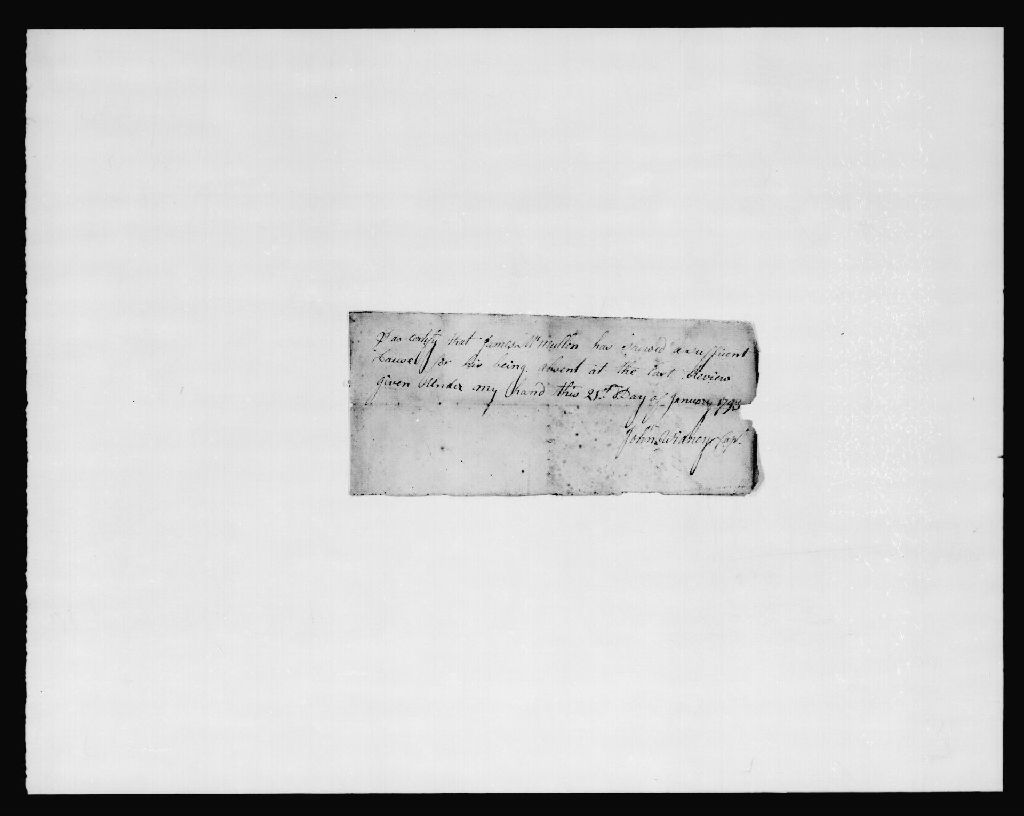 I do certify that James McMullen has shewed a sufficient
Cause for his being absent at the last Review
given under my hand this 21st Day of January 1793
John Widney Capt.